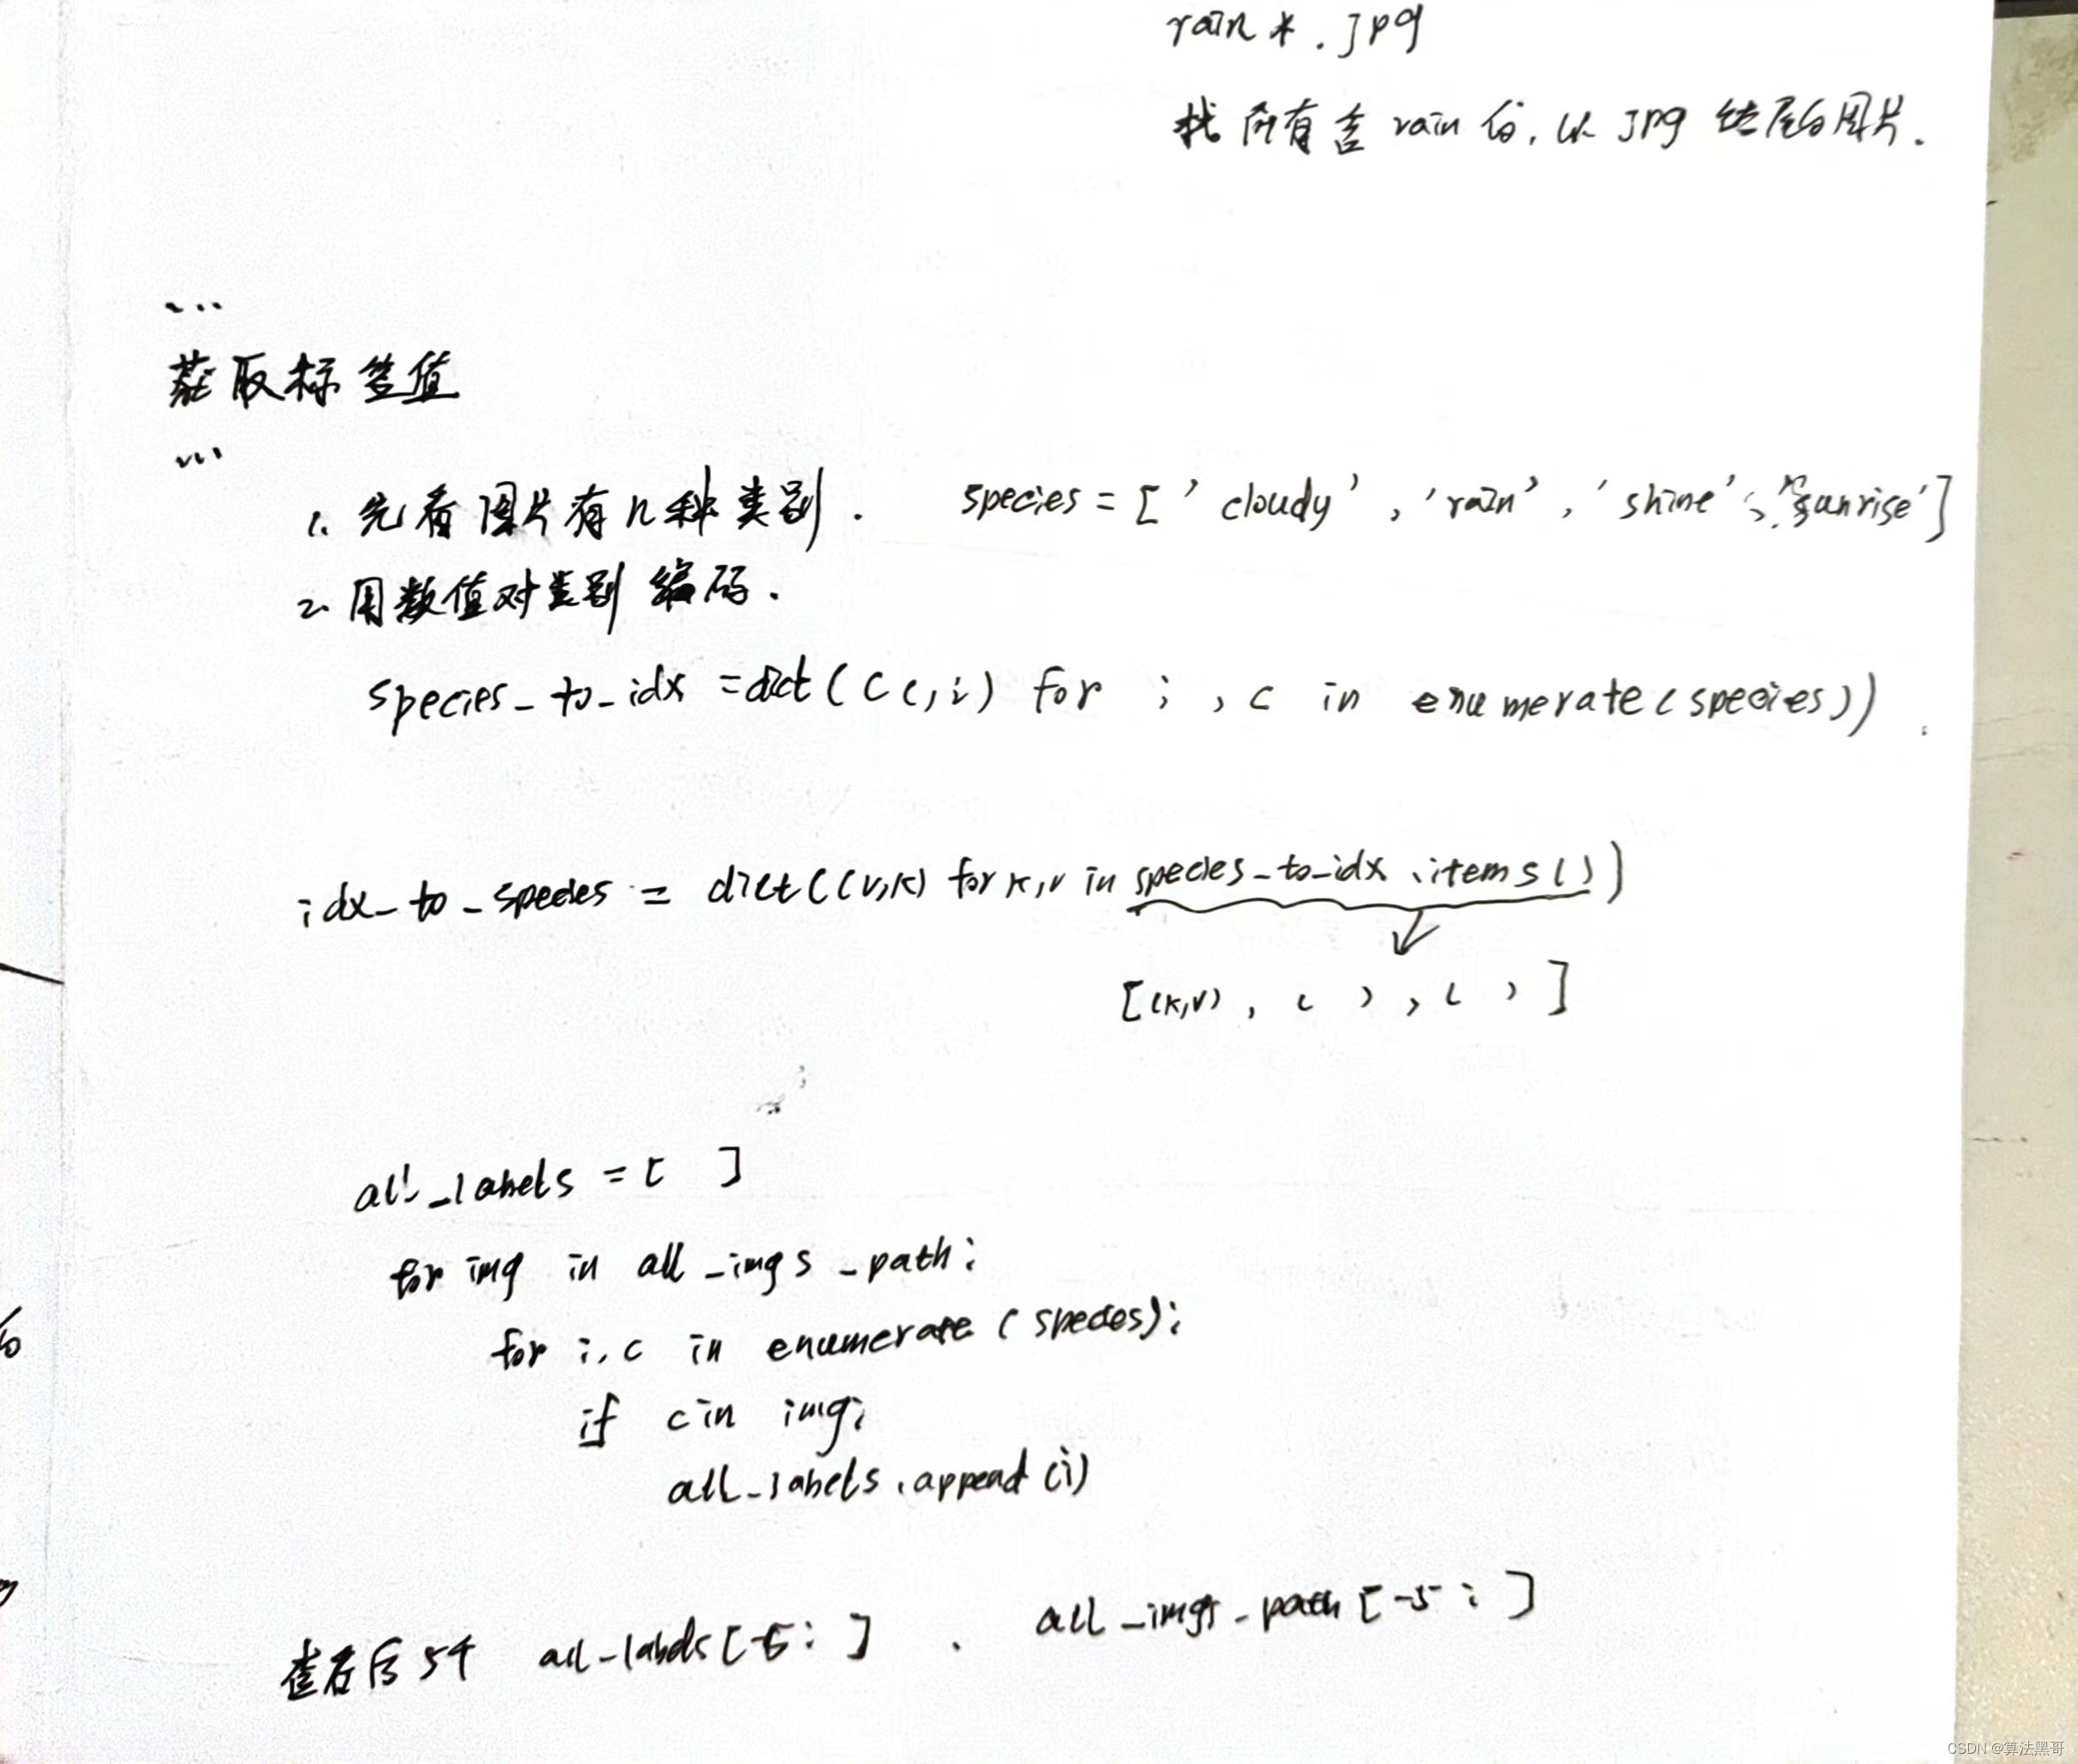 rain *.jpg
找所有含 rain 的, 以 jpg 结尾的图片.
'''
获取标签值
'''
1. 先看图片有几种类别. species = [' cloudy', 'rain', 'shine', 'sunrise']
2. 用数值对类别编码.
species_to_idx = dict((c,i) for i, c in enumerate(species))
idx_to_species = dict((v,k) for k,v in species_to_idx.items())
[(k,v), ( ), ( )]
all_labels = [ ]
for img in all_imgs_path:
for i,c in enumerate(species):
if c in img:
all_labels.append(i)
查看后5个 all_labels[-5:]. all_imgs_path[-5:]
CSDN @算法黑哥